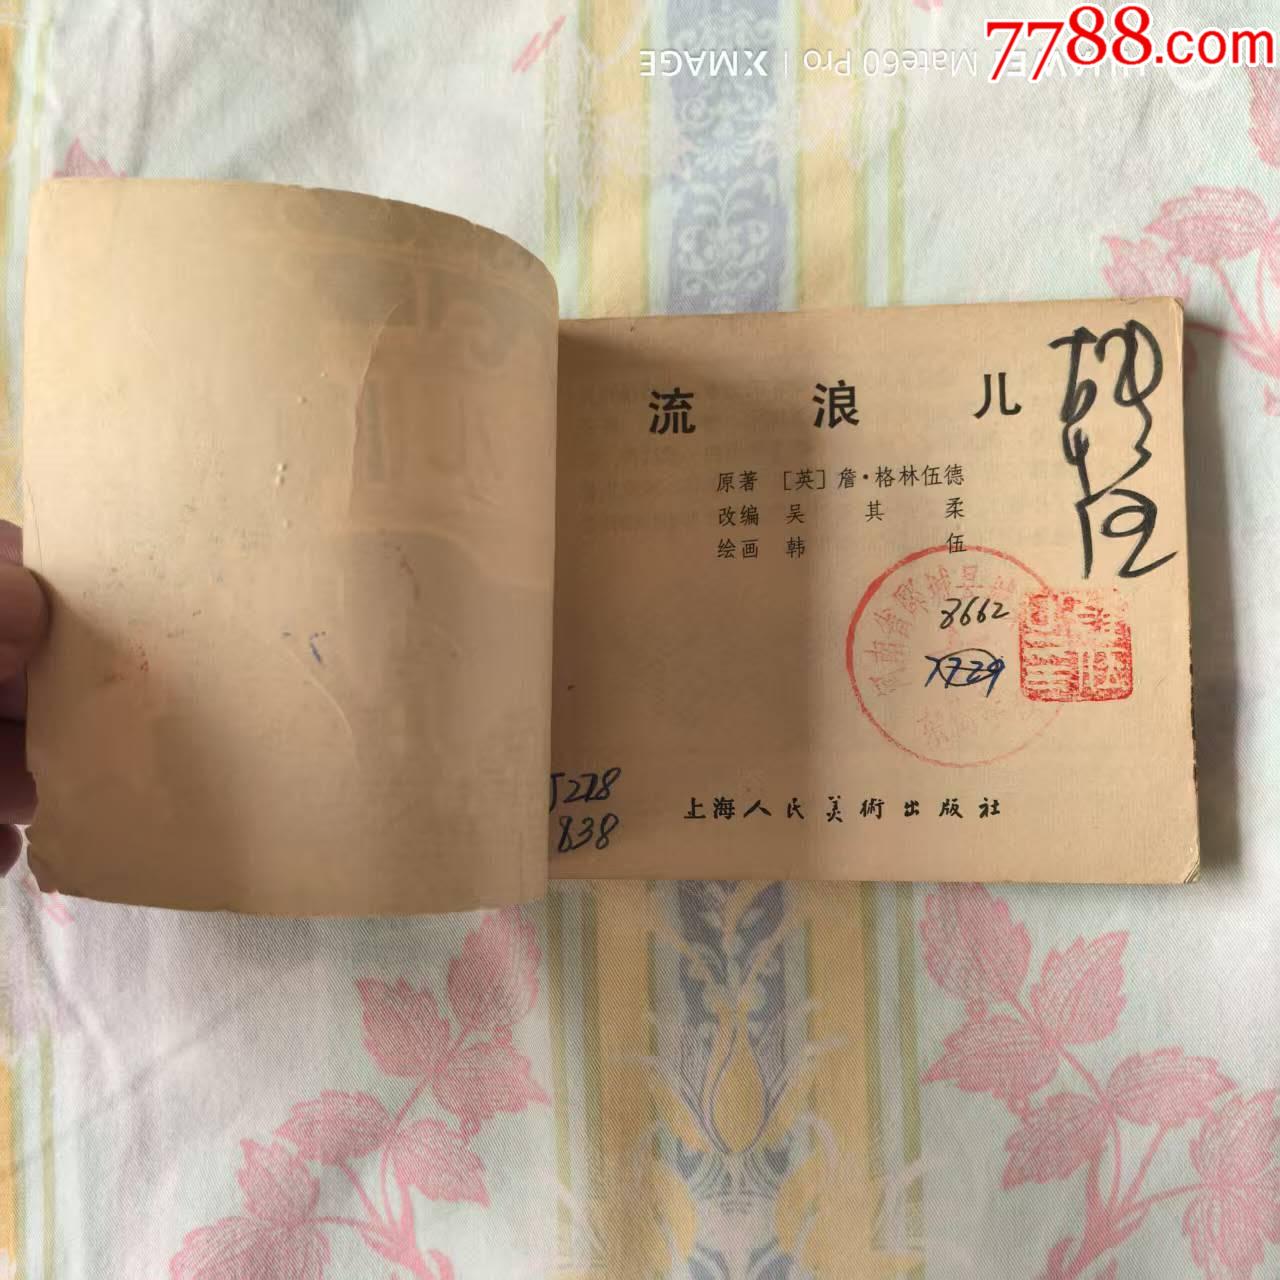 7788.com
Mate60 Pro | XMAGE
流浪儿
原著 [英] 詹·格林伍德
改编 吴其柔
绘画 韩伍
8662
7729
J218
838
上海人民美術出版社